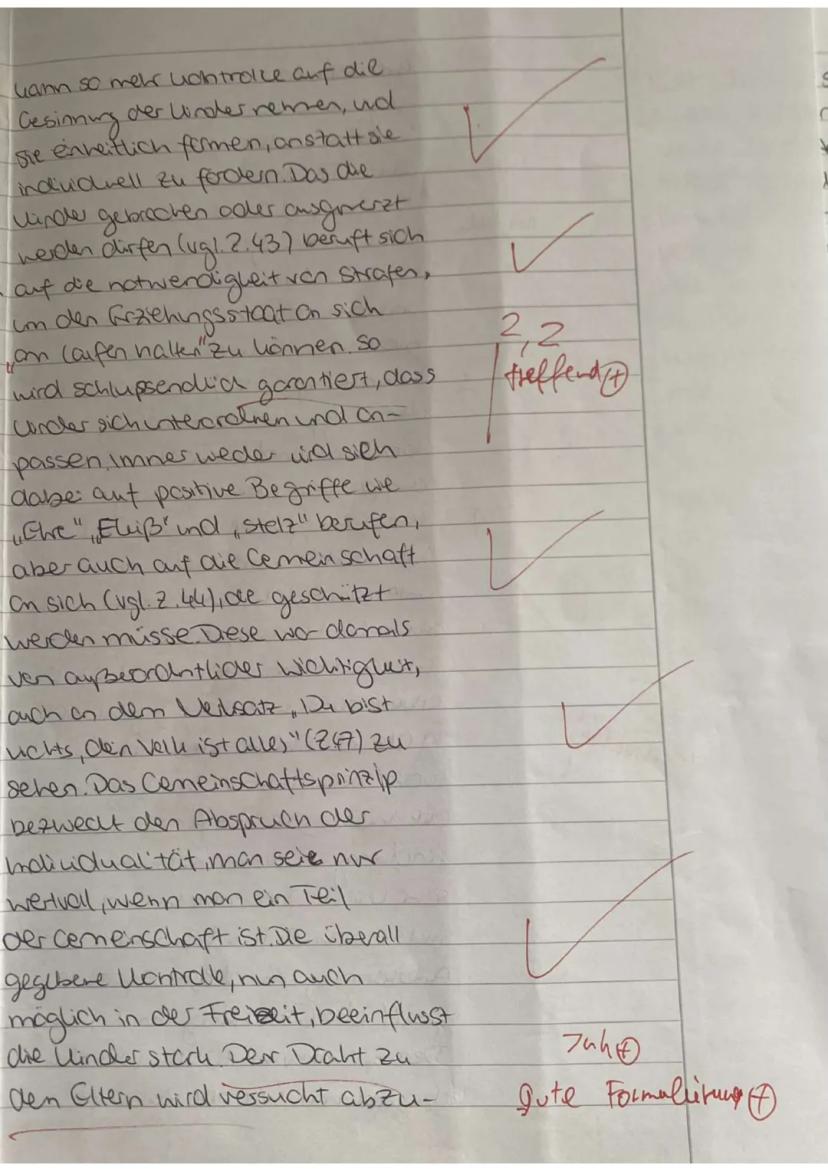 kann so mehr Kontrolle auf die
Gesinnung der Kinder nehmen, und
sie einheitlich formen, anstatt sie
individuell zu fördern. Das die
Kinder gebrochen oder ausgmerzt
werden dürfen (vgl. Z. 43) beruft sich
auf die notwendigkeit von Strafen,
um den Erziehungsstaat an sich
„am laufen halten" zu können. So
wird schlupsendlich garantiert, dass
Kinder sich unterordnen und an-
passen, immer wieder wird sich
dabei auf positive Begriffe wie
„Ehre" „Fleiß" und „Stolz" berufen,
aber auch auf die Gemeinschaft
an sich (vgl. Z. 44), die geschützt
werden müsse. Diese war damals
von außerordentlicher Wichtigkeit,
auch an dem Leitsatz „Du bist
nichts, dein Volk ist alles" (Z47) zu
sehen. Das Gemeinschaftsprinzip
bezweckt den Abspruch der
Individualität, man seie nur
wertvoll, wenn man ein Teil
der Gemeinschaft ist. Die überall
gegebene Kontrolle, nun auch
möglich in der Freizeit, beeinflusst
die Kinder stark. Der Draht zu
den Eltern wird versucht abzu-
2,2
treffend +
gute Formulierung +